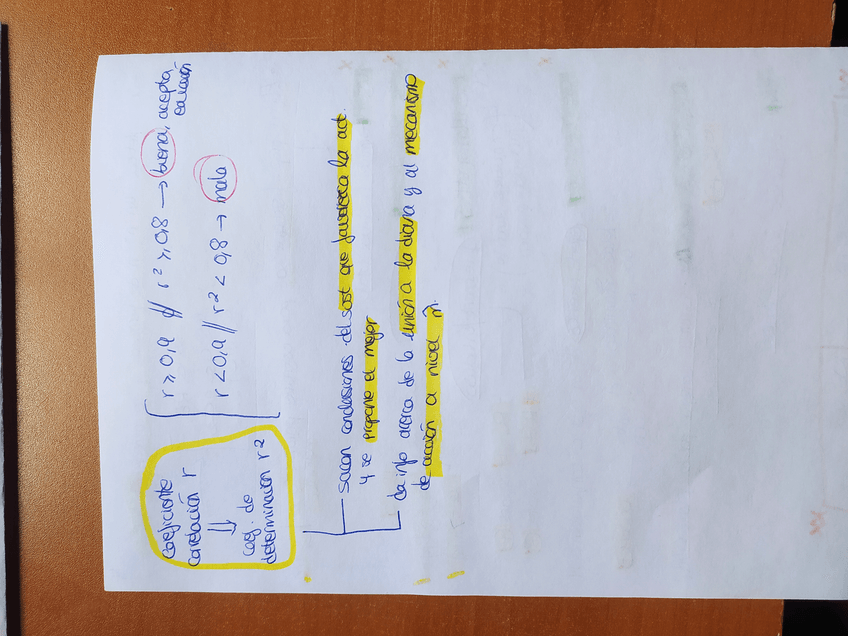 Coeficiente
correlación r
⇓
coef. de
determinación r²
r ≥ 0,9 // r² ≥ 0,8 → buena, acepta
ecuación
r < 0,9 // r² < 0,8 → mala
sacan conclusiones del sust que favorezca la act.
y se propone el mejor
da info acerca de la unión a la diana y al mecanismo
de acción a nivel m̂.